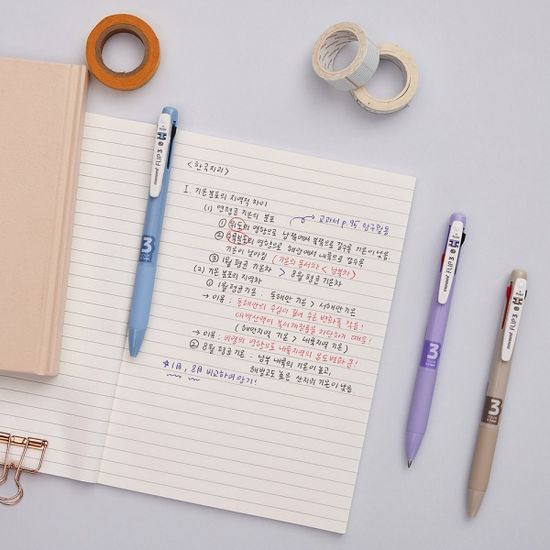 <한국지리>
I. 기온분포의 지역적 차이
(1) 연평균 기온의 분포
→ 교과서 p.95 탐구활동
① 위도의 영향으로 남쪽에서 북쪽으로 갈수록 기온이 낮음
② 의 영향으로 해안에서 내륙으로 갈수록
기온이 낮아짐 (기온의 동서차 < 남북차)
③ 1월 평균 기온차 > 8월 평균 기온차
(2) 기온 분포의 지역차
① 1월 평균기온 : 동해안 기온 > 서해안 기온
→ 이유 : 동해안의 수심이 깊어 수온 변화가 작음!
태백산맥이 북서계절풍을 차단하기 때문!
(해안지역 기온 > 내륙지역 기온)
→ 이유 : 비열의 영향으로 내륙지역의 온도변화가 큼!
② 8월 평균 기온 : 남부 내륙의 기온이 높고,
해발고도 높은 산지의 기온이 낮음
* 1月, 8月 비교하며 알기!
FLIP 3
3
FLIP 3
3
FLIP 3
3